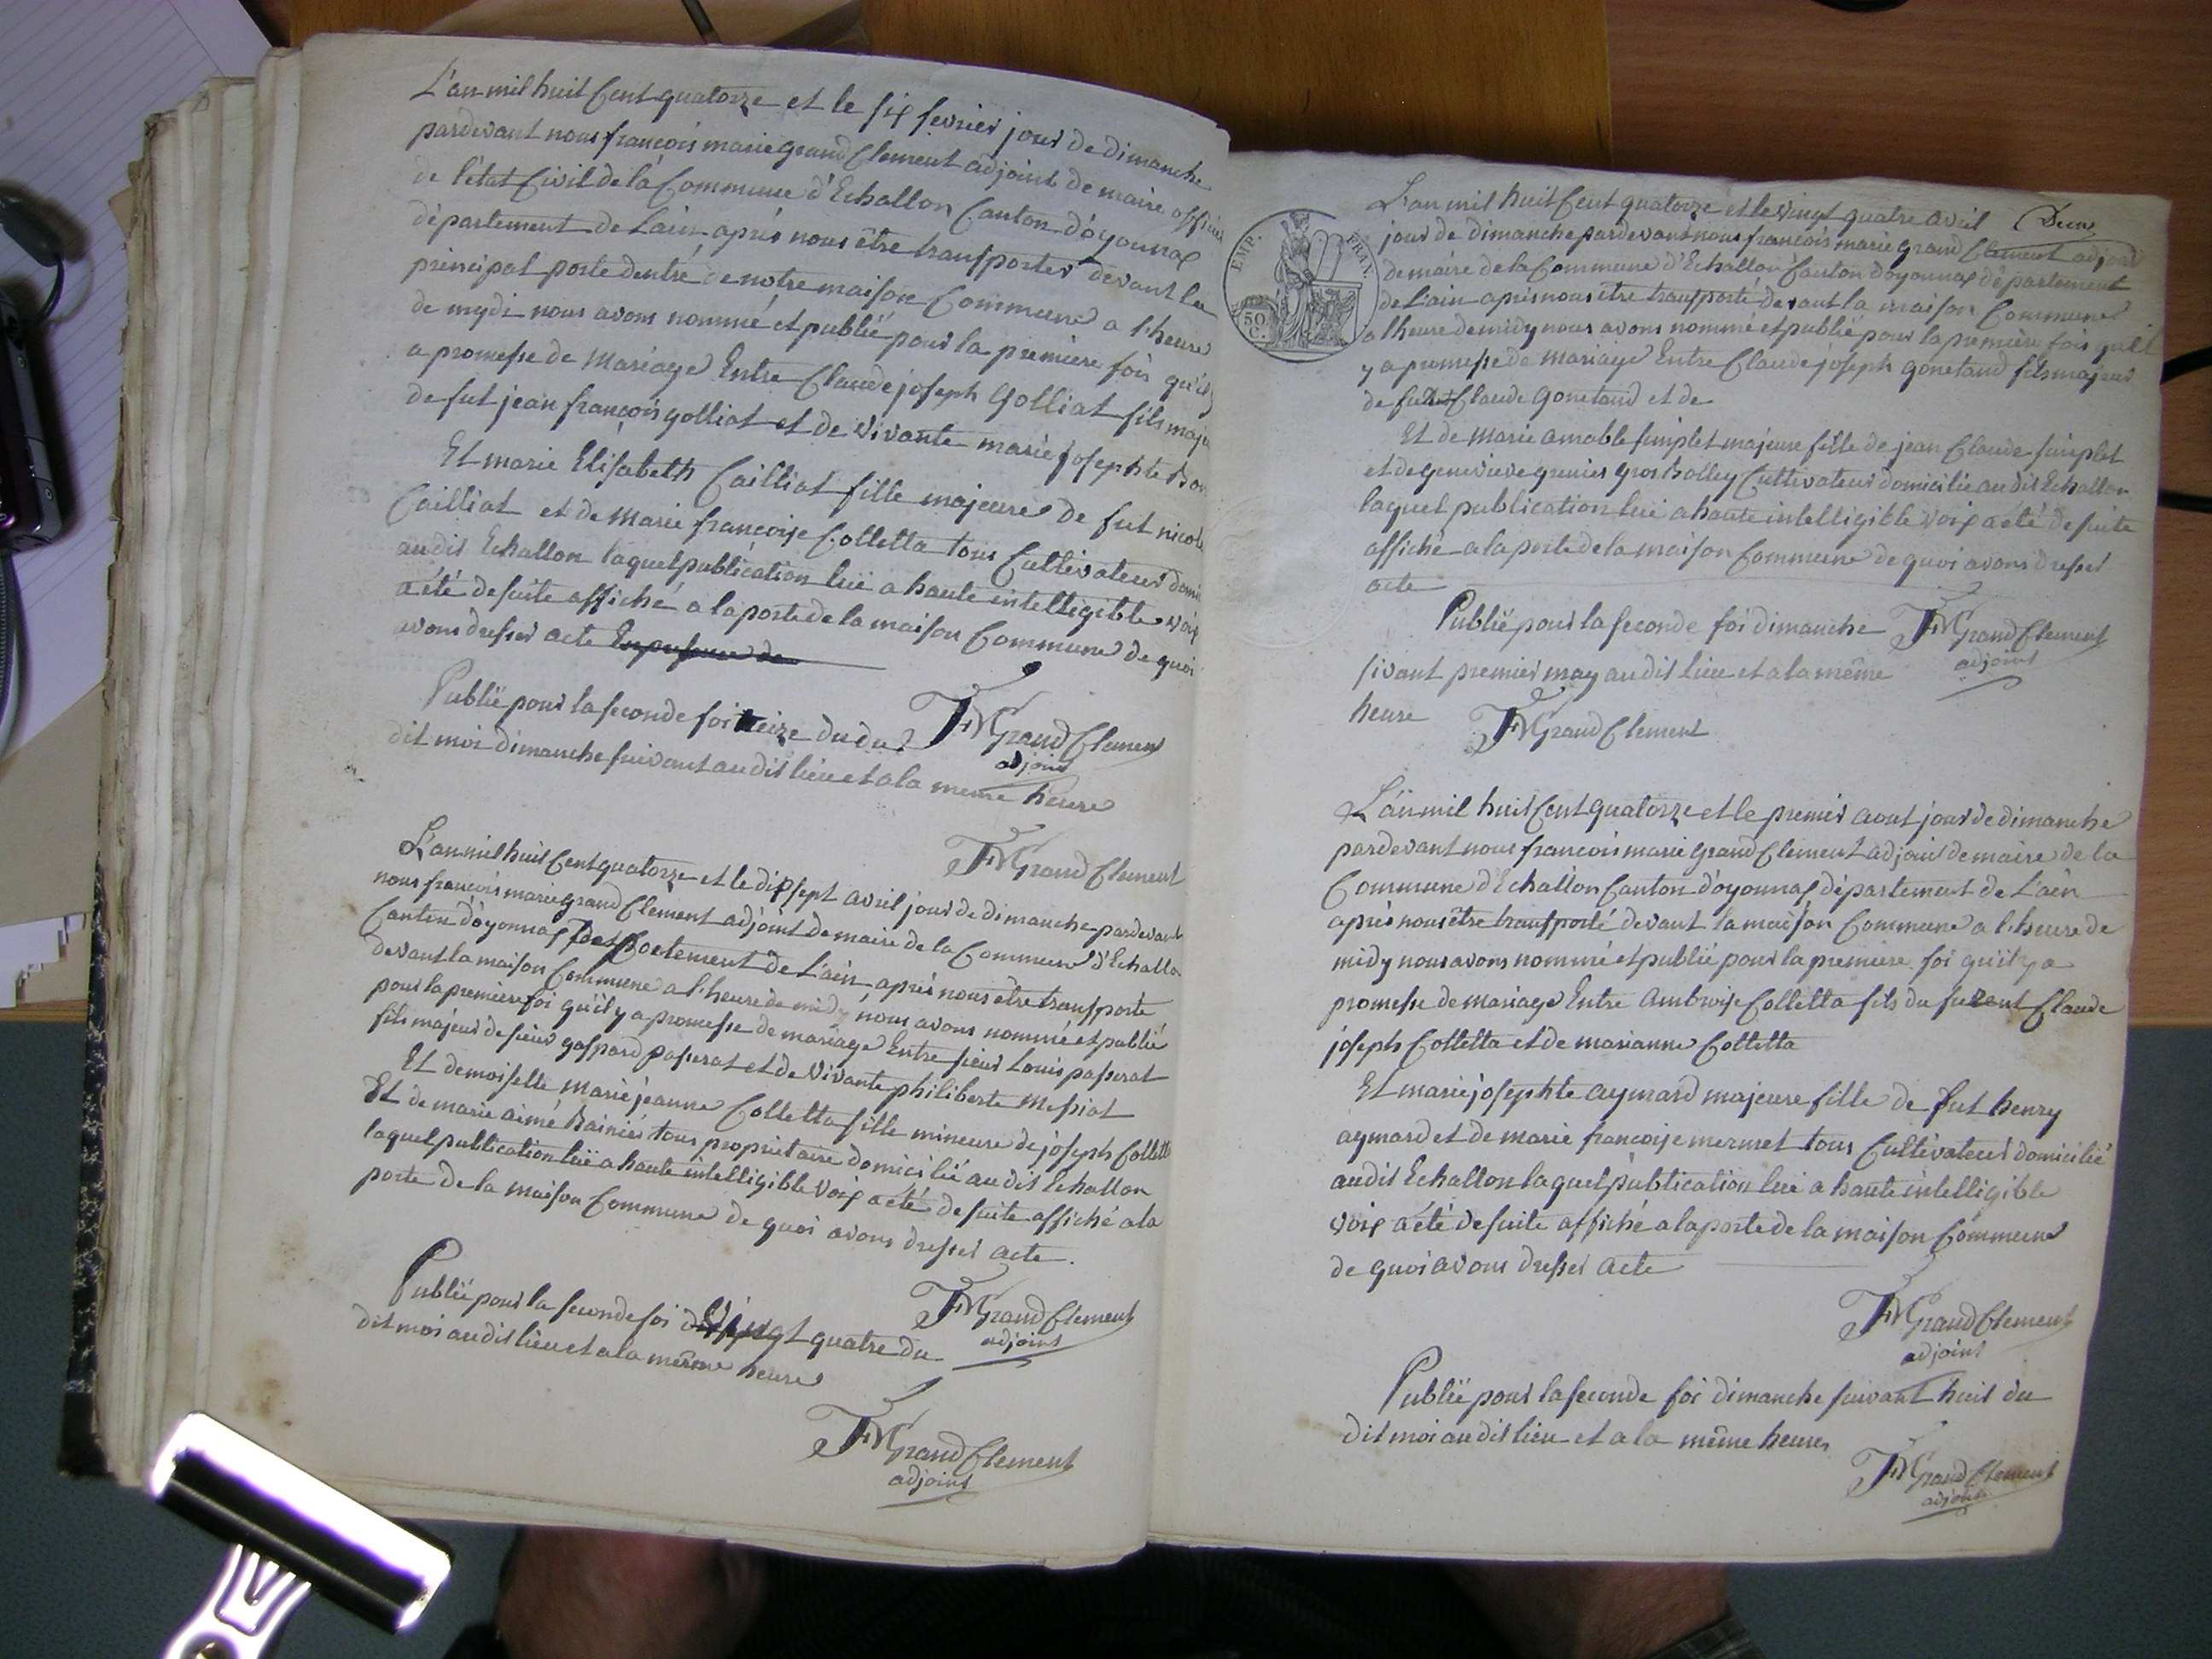 L'an mil huit Cent quatorze et le six fevrier jour de dimanche
pardevant nous françois marie grand Clement adjoint de maire officier
de l'état Civil de la Commune d'Echallon Canton d'oyonnax
département de Lain après nous être transporter devant la
principal porte dentré de notre maison Commune a l'heure
de mydi nous avons nommé et publié pour la première fois qu'il y
a promesse de Mariage Entre Claude joseph Golliat fils maju
de fut jean françois golliat et de vivante marie josephte
Et marie Elisabeth Cailliat fille majeure de fut nicol
Cailliat et de Marie françoise Colletta tous Cultivateur domi
audit Echallon laquel publication luë a haute intelligible voix
a été de suite affiché a la porte de la maison Commune de quoi
avons dresser acte
Publié pour la seconde foi treize du du
dit moi dimanche suivant audit lieu et a la meme heure
FMGrand Clement
adjoint
FMGrand Clement
L'an mil huit Cent quatorze et le dixsept avril jour de dimanche pardevant
nous françois marie grand Clement adjoint de maire de la Commune d'Echallon
Canton d'oyonnax departement de L'ain après nous être transporté
devant la maison Commune a l'heure de midy nous avons nommé et publié
pour la première foi qu'il y a promesse de mariage Entre sieur Louis passerat
fils majeur de sieur gaspard passerat et de vivante philiberte Messiat
Et demoiselle marie jeanne Colletta fille mineure de joseph Colletta
Et de marie aimé Rainier tous proprietaire domicilié audit Echallon
laquel publication luë a haute intelligible voix a été de suite affiché a la
porte de la maison Commune de quoi avons dresser acte.
FMGrand Clement
adjoint
Publié pour la seconde foi vingt quatre du
dit moi audit lieu et a la même heure
FMGrand Clement
adjoint
EMP. FRAN.
50
C.
L'an mil huit Cent quatorze et le vingt quatre avril Deux
jour de dimanche pardevant nous françois marie grand Clement adjoint
de maire de la Commune d'Echallon Canton d'oyonnax département
de L'ain après nous être transporté devant la maison Commune
a lheure de midy nous avons nommé et publié pour la première fois quil
y a promesse de mariage Entre Claude joseph gonetand fils majeur
de fut Claude gonetand et de
Et de marie amable simplet majeure fille de jean Claude simplet
et de genevieve grenier gros Rolley Cultivateur domicilié audit Echallon
laquel publication luë a haute intelligible voix a été de suite
affiché a la porte de la maison Commune de quoi avons dresser
acte
Publié pour la seconde foi dimanche
sivant premier may audit lieu et a la même
heure
FMGrand Clement
adjoint
FMGrand Clement
L'an mil huit Cent quatorze et le premier aout jour de dimanche
pardevant nous françois marie grand Clement adjoint de maire de la
Commune d'Echallon Canton d'oyonnax département de L'ain
après nous être transporté devant la maison Commune a l'heure de
midy nous avons nommé et publié pour la première foi qu'il y a
promesse de mariage Entre Ambroise Colletta fils du Claude
joseph Colletta et de marianne Colletta
Et marie josephte aymard majeure fille de fut henry
aymard et de marie françoise mermet tous Cultivateur domicilié
audit Echallon laquel publication luë a haute intelligible
voix a été de suite affiché a la porte de la maison Commune
de quoi avons dresser acte
FMGrand Clement
adjoint
Publié pour la seconde foi dimanche suivant huit du
dit moi audit lieu et a la même heure
FMGrand Clement
adjoint